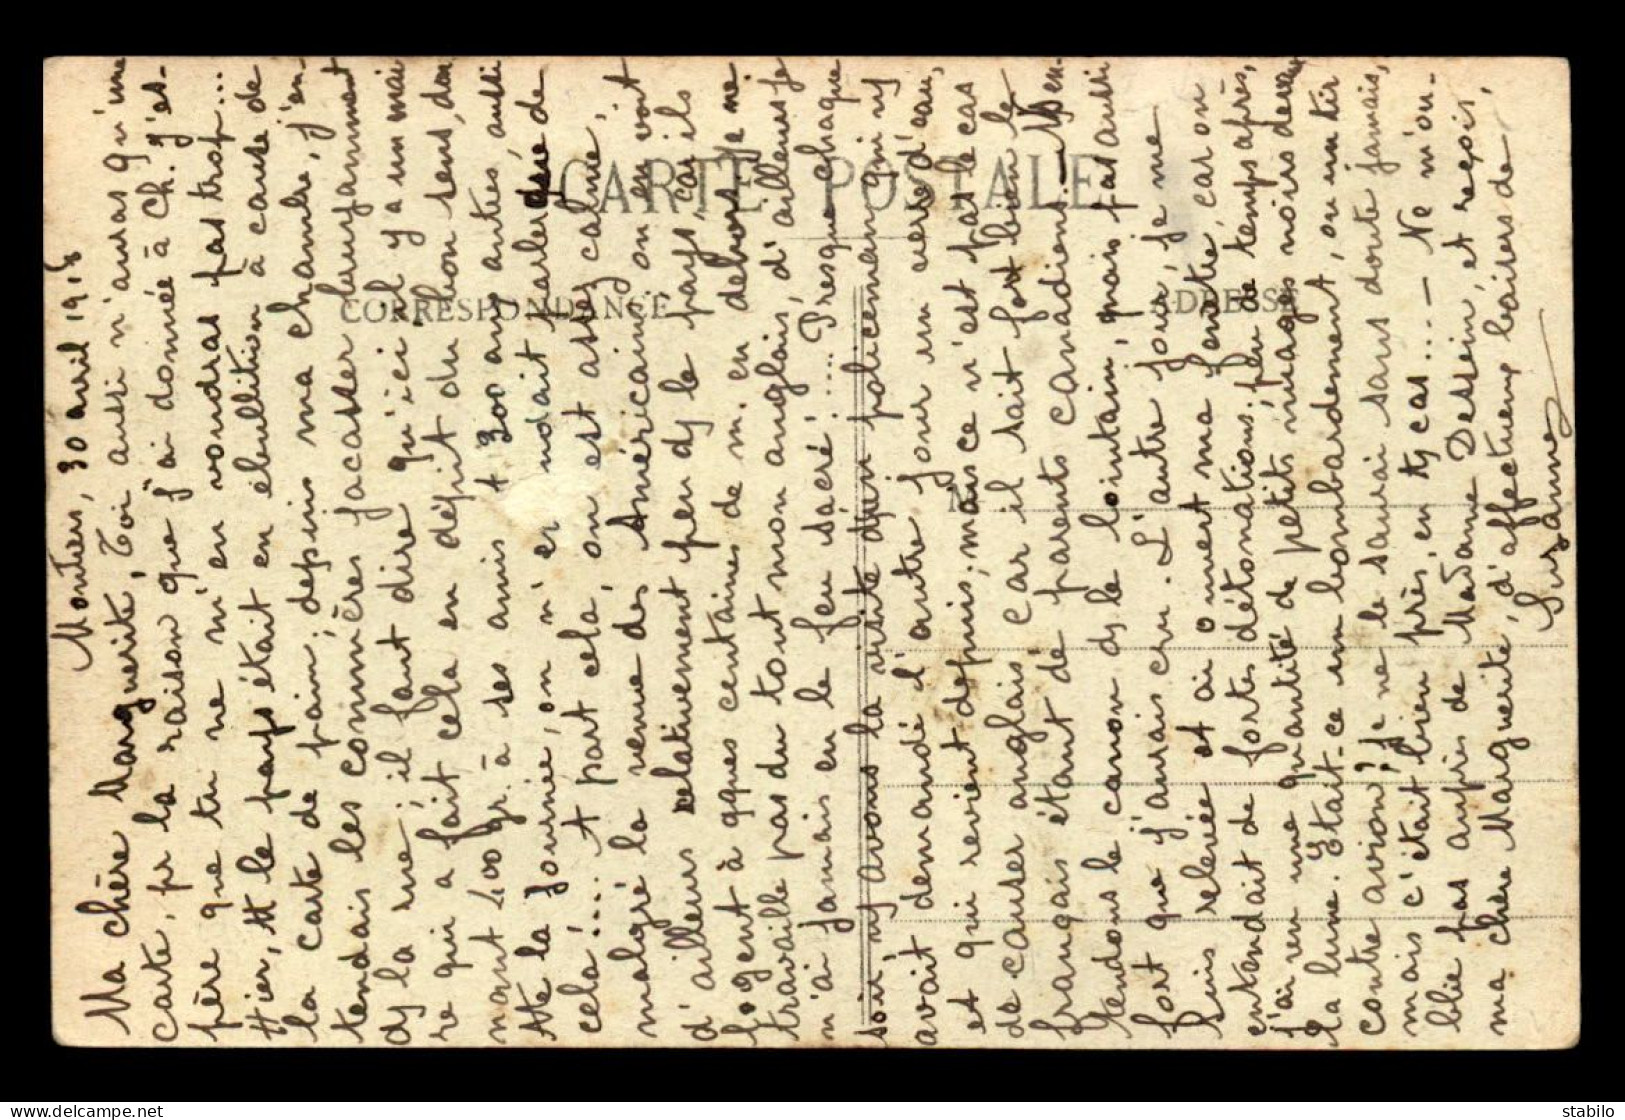 Montiers, 30 avril 1918
Ma chère Marguerite, Toi aussi n'auras qu'une
carte, pr la raison que j'ai donnée à Ch. J'es-
père que tu ne m'en voudras pas trop...
Hier, tt le pays était en ébullition à cause de
la carte de pain; depuis ma chambre, j'en-
tendais les commères jacasser bruyamment
ds la rue; il faut dire qu'ici il y a un mai
re qui a fait cela en dépit du bon sens, don
nant 400 gr. à ses amis et 300 aux autres, aussi
tte la journée, on n'entendait parler que de
cela!... A part cela, on est assez calme,
malgré la venue des Américains; on en voit
d'ailleurs relativement peu ds le pays, car ils
logent à qques centaines de m. en dehors. Je ne
travaille pas du tout mon anglais, d'ailleurs je
n'ai jamais eu le feu sacré!... Presque chaque
soir, ns avons la visite d'un policeman qui ns
avait demandé l'autre jour un verre d'eau,
et qui revient depuis, mais ce n'est pas le cas
de causer anglais, car il sait fort bien le
français étant de parents canadiens. - Ns en-
tendons le canon ds le lointain, mais pas aussi
fort que j'aurais cru. L'autre jour, je me
suis relevée et ai ouvert ma fenêtre, car on
entendait de fortes détonations; peu de temps après,
j'ai vu une quantité de petits nuages noirs devant
la lune. Etait-ce un bombardement, ou un tir
contre avion? Je ne le saurai sans doute jamais,
mais c'était bien près, en ts cas... - Ne m'ou-
blie pas auprès de Madame Dessein, et reçois,
ma chère Marguerite, d'affectueux baisers de
Suzanne
CARTE POSTALE
CORRESPONDANCE
ADRESSE
M
stabilo